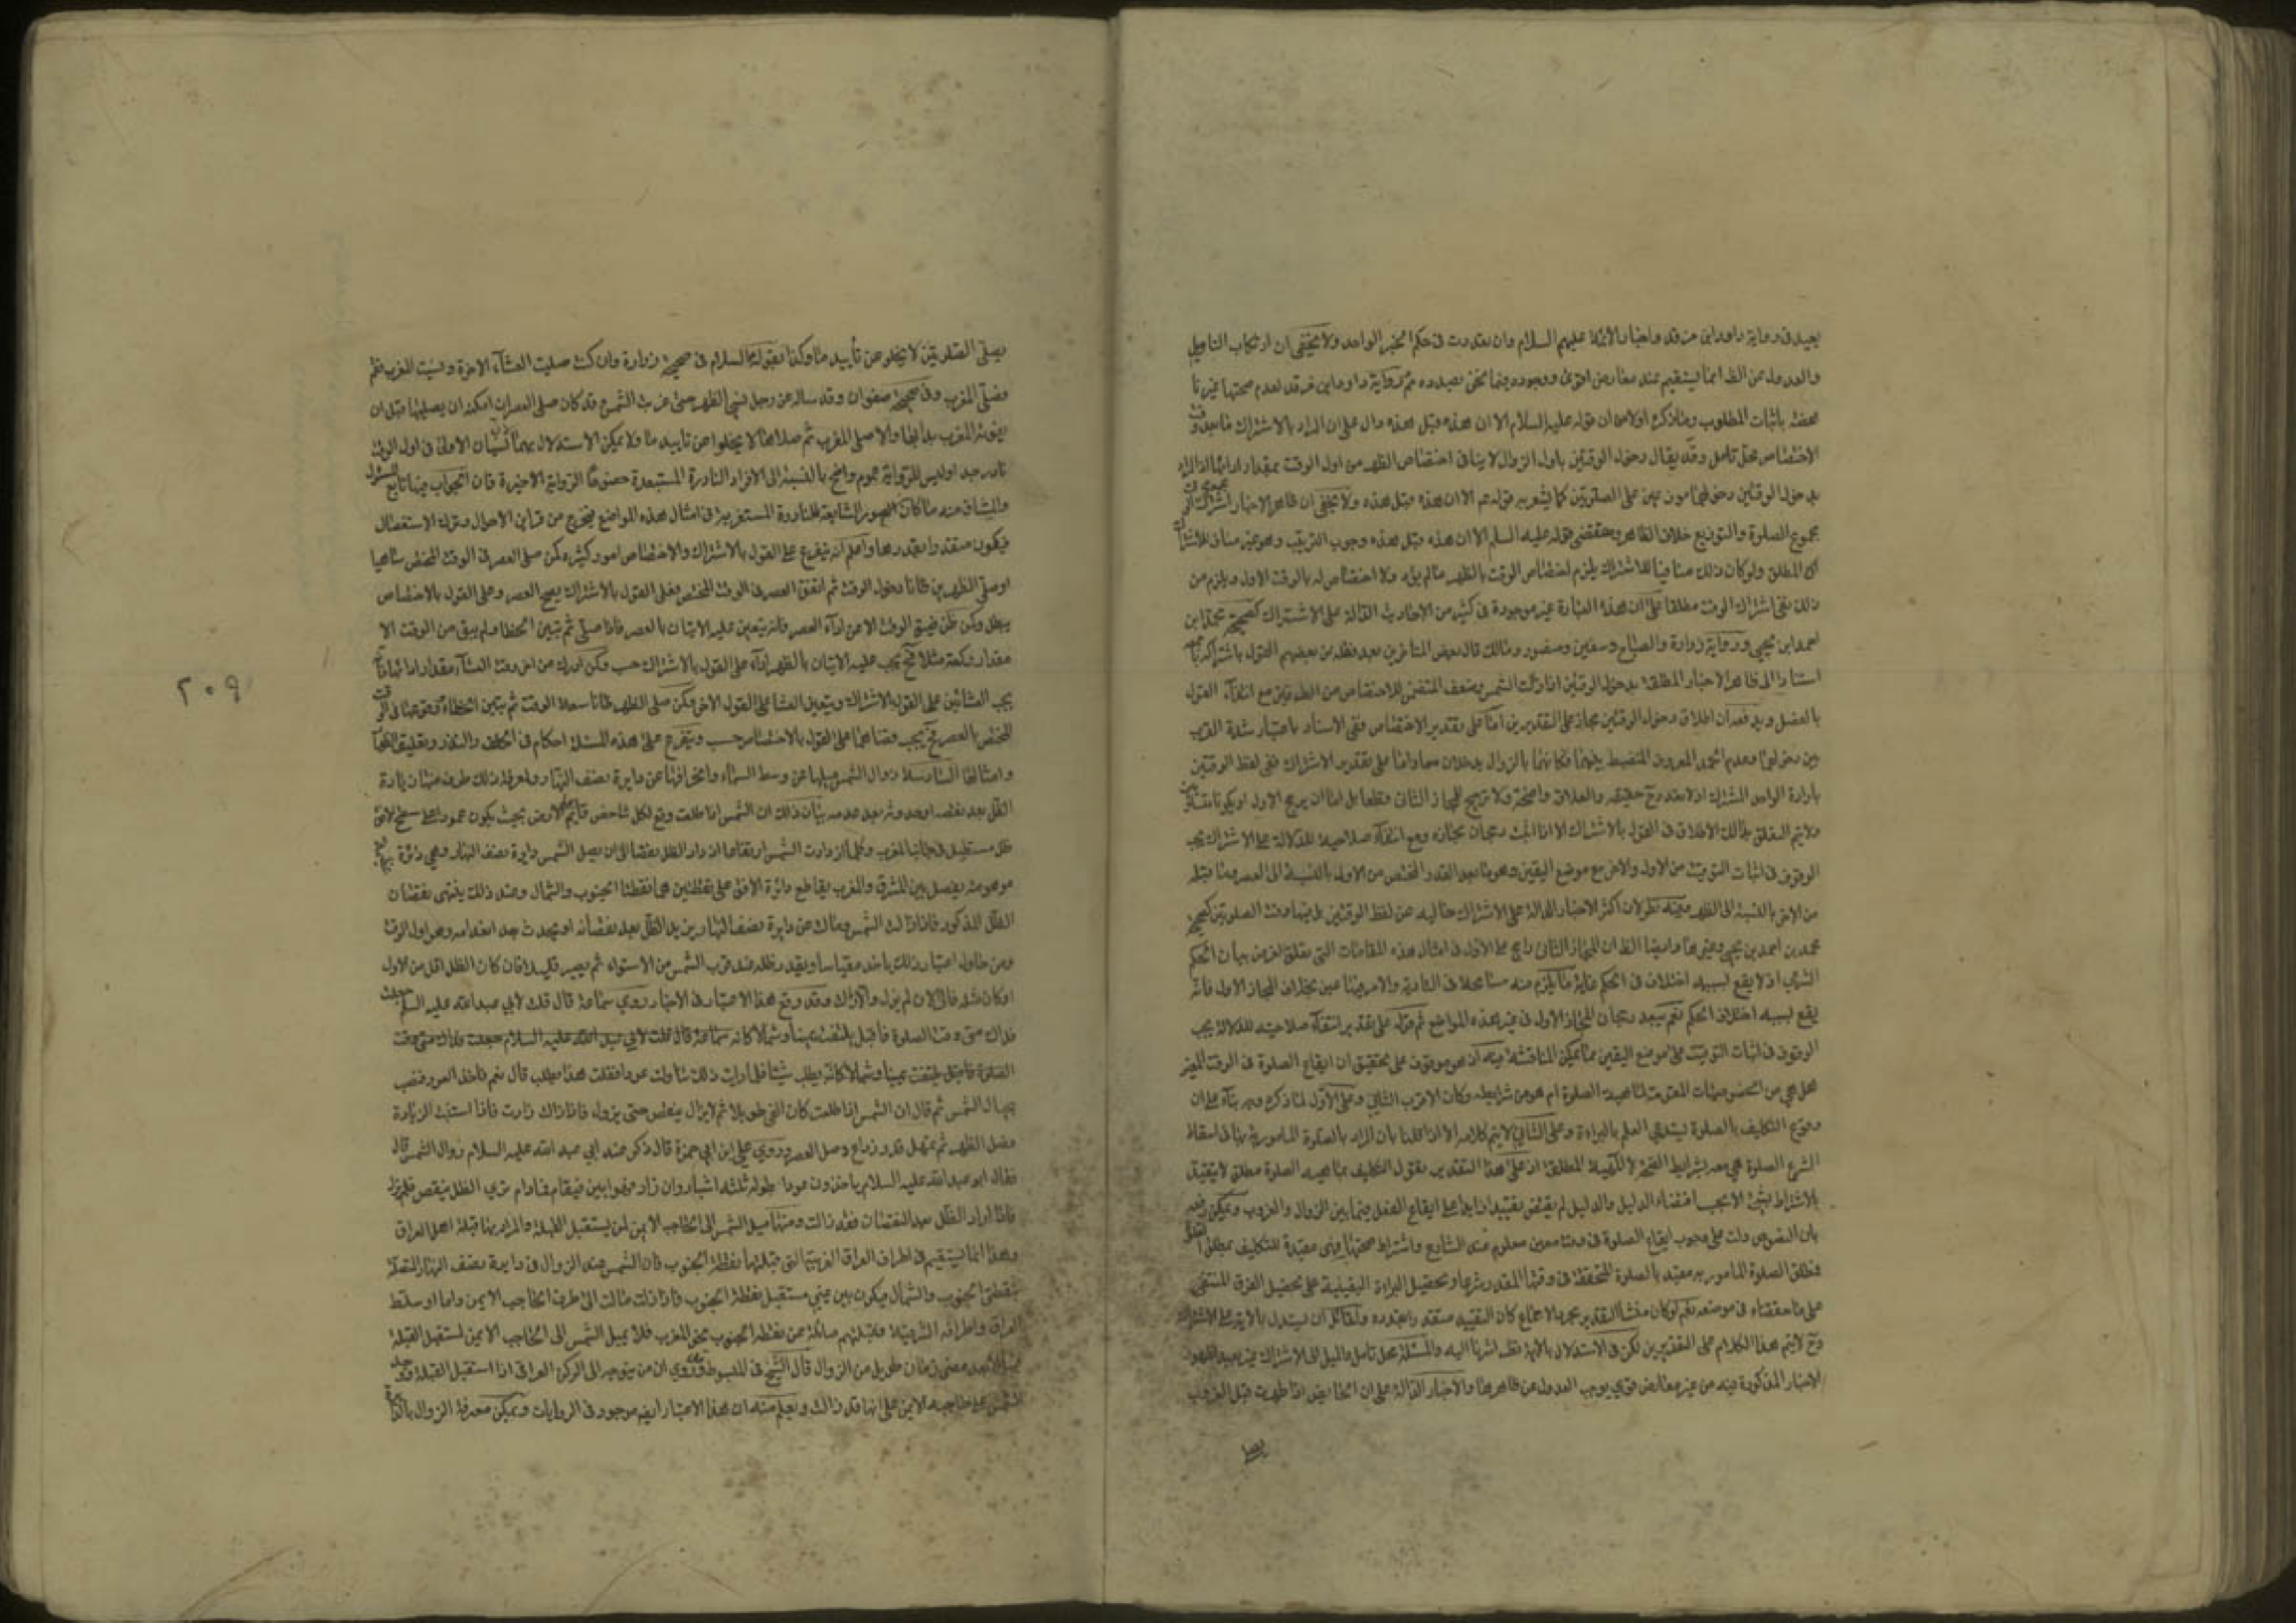 بعيد في رواية داود ابن فرقد واخبار الائمة عليهم السلام وان تعددت في حكم الخبر الواحد ولا يخفى ان ارتكاب التاويل
والعدول عن الظ انما يستقيم عند معارض اقوى ووجوده فيما نحن بصدده مم لرواية داود ابن فرقد لعدم صحتها غير
باثبات المطلوب وما ذكره اولا من ان قوله عليه السلام الا ان هذه قبل هذه دال على ان المراد بالاشتراك ما بعد
الاختصاص محل تامل وقد يقال دخول الوقتين باول الزوال لا ينافي اختصاص الظهر من اول الوقت بمقدار ادائها اذ المراد
بدخول الوقتين دخولهما موزعين على الصلوتين كما يشعر به قوله عم الا ان هذه قبل هذه ولا يخفى ان ظاهر الاخبار اشتراك
مجموع الصلوة والتوزيع خلاف الظاهر ومقتضى قوله عليه السلم الا ان هذه قبل هذه وجوب الترتيب وهو غير مناف للاشتراك
المطلق ولو كان ذلك منافيا للاشتراك يلزم اختصاص الوقت بالظهر ما لم يؤد ولا اختصاص له بالوقت الاول ويلزم من
ذلك نفي اشتراك الوقت مطلقا على ان هذه العبارة غير موجودة في كثير من الاحاديث الدالة على الاشتراك كصحيحة محمد ابن
احمد ابن يحيى ورواية زرارة والصباح وسفين ومنصور ومالك قال بعض المتاخرين بعد نقله من بعضهم القول باشتراك
استنادا الى ظاهر الاخبار المطلقة بدخول الوقتين اذا زالت الشمس وضعف المتضمن للاختصاص من الطرفين مع انتفاء القول
بالفصل ويدفعه ان اطلاق دخول الوقتين مجاز على التقديرين اما على تقدير الاختصاص ففي الاسناد باعتبار شدة القرب
بين دخولهما وعدم الحد المعروف المنضبط بينهما فكانهما بالزوال يدخلان معا واما على تقدير الاشتراك ففي لفظ الوقتين
بارادة الواحد المشترك اذ لا تعدد ح حقيقة والعلاقة واضحة ولا ترجيح للمجاز الثاني قطعا بل اما ان يرجح الاول او يكونا
ولا يتم التعلق بذلك الاطلاق في القول بالاشتراك الا اذا اثبت رجحان مجازه ومع انتفاء صلاحيته للدلالة على الاشتراك يجب
الوقوف في اثبات التوقيت من الاول والاخر مع موضع اليقين وهو ما بعد القدر المختص من الاول بالنسبة الى العصر وما قبله
من الاخر بالنسبة الى الظهر وفيه نظر لان اكثر الاخبار الدالة على الاشتراك خاليه عن لفظ الوقتين بل فيها وقت الصلوتين كصحيحة
محمد بن احمد بن يحيى وغيرها وايضا الظ ان المجاز الثاني راجح على الاول في امثال هذه المقامات التي تعلق الغرض ببيان الحكم
الشرعي اذ لا يقع بسببه اختلاف في الحكم غاية ما يلزم منه مسامحة في التادية والامر فيها هين بخلاف المجاز الاول فانه
يقع بسببه اختلاف الحكم نعم يبعد رجحان المجاز الاول في غير هذه المواضع ثم قوله على تقدير انتفاء صلاحيته للدلالة يجب
الوقوف في اثبات التوقيت على موضع اليقين مما يمكن المناقشة فيه اذ هو موقوف على تحقيق ان ايقاع الصلوة في الوقت المعين
هل هي من الخصوصيات المقومة لماهية الصلوة ام هو من شرايطه وكان الاقرب الثاني وعلى الاول لما ذكره وجه بناء على ان
وقوع التكليف بالصلوة يستدعي العلم بالبراءة وعلى الثاني لا يتم كلامه الا اذا قلنا بان المراد بالصلوة المامور بها في
الشرع الصلوة هي مع شرايط الصحة لا الماهية المطلقة اذ على هذا التقدير نقول التكليف بماهية الصلوة مطلق لا يتقيد
بالاشتراط بشئ الا بحسب اقتضاء الدليل والدليل لم يقتض تقييدا زايدا على ايقاع الفعل فيما بين الزوال والغروب ويمكن دفعه
بان النصوص دلت على وجوب ايقاع الصلوة في وقت معين معلوم عند الشارع واشتراط صحتها فهي مقيدة للتكليف بمطلق
فطلق الصلوة المامور به مقيد بالصلوة المتحققة في وقتها المقدر شرعا وتحصيل البراءة اليقينية على تحصيل الفرد المتيقن
على ما حققناه في موضعه نعم لو كان منشأ التقدير مجرد الاجماع كان التقييد متقدرا بقدره ولقائل ان يستدل بالاية على الاشتراك
وح لا يتم هذا الكلام على التقديرين لكن في الاستدلال بالاية نظر اشرنا اليه والمسئلة محل تامل والميل الى الاشتراك غير بعيد
الاخبار المذكورة فيه من غير معارض قوي يوجب العدول عن ظاهرها والاخبار الدالة على ان الحايض اذا طهرت قبل الغروب
يصلي الصلوتين لا يخلو عن تأييد ما وكذا بقوله عليه السلام في صحيحة زرارة وان كنت صليت العشاء الاخرة ونسيت المغرب فقم
فصلي المغرب وفي صحيحة صفوان وقد ساله عن رجل نسي الظهر حتى غربت الشمس وقد كان صلى العصر ان امكنه ان يصليها قبل ان
يفوته المغرب بدأ بها والا صلى المغرب ثم صلاها لا يخلوا عن تاييد ما ولا يمكن الاستدلال بهما لان الاولى في اول الوقت
نادر جدا وليس للرواية عموم واضح بالنسبة الى الافراد النادرة المستبعدة خصوصا الرواية الاخيرة فان الجواب فيها تابع للسؤال
والمنساق منه ما كان الصور الشايعة للنادرة المستغربة في امثال هذه المواضع يخرج من قراين الاحوال وترك الاستفصال
فيكون متقدرا بقدرها واعلم انه يتفرع على القول بالاشتراك والاختصاص امور كثيرة كمن صلى العصر في الوقت المختص ساهيا
او صلى الظهرين ظانا دخول الوقت ثم اتفق العصر في الوقت المختص فعلى القول بالاشتراك يصح العصر وعلى القول بالاختصاص
يبطل وكمن ظن ضيق الوقت الا عن اداء العصر فانه يتعين عليه الاتيان بالعصر فاذا صلى ثم تبين الخطا ولم يبق من الوقت الا
مقدار ركعة مثلا فح يجب عليه الاتيان بالظهر اداء على القول بالاشتراك حسب وكمن ادرك من اخر وقت العشاء مقدار ادائها
يجب العشائين على القول بالاشتراك ويتعين العشا على القول الاخر وكمن صلى الظهر ظانا سعة الوقت ثم تبين الخطاء ووقوعها في
المختص بالعصر فح يجب قضاءها على القول بالاختصاص حسب ويتفرع على هذه المسئلة احكام في الحلف والنذر وتعليق
وامثالها السادسة زوال الشمس ميلها عن وسط السماء وانحرافها عن دايرة نصف النهار ولمعرفة ذلك طرق منها زيادة
الظل بعد نقصه او حدوثه بعد عدمه بيان ذلك ان الشمس اذا طلعت وقع لكل شاخص قايم على الارض بحيث يكون عمودا على سطح الافق
ظل مستطيل في جانب المغرب وكلما ازدادت الشمس ارتفاعا ازداد الظل نقصا الى ان يصل الشمس دايرة نصف النهار وهي دائرة
موهومة يفصل بين المشرق والمغرب يقاطع دائرة الافق على نقطتين هما نقطتا الجنوب والشمال وعند ذلك ينتهي نقصان
الظل المذكور فاذا زالت الشمس ومالت عن دايرة نصف النهار يزيد الظل بعد نقصانه او يحدث بعد انعدامه وهو اول الوقت
ومن حاول اعتبار ذلك ياخذ مقياسا ويقدر ظله عند قرب الشمس من الاستواء ثم يصبر قليلا فان كان الظل اقل من الاول
او كان مثله فالى الان لم يزل والا زالت وقد وقع هذا الاعتبار في الاخبار روى سماعة قال قلت لابي عبد الله عليه السلم جعلت
فداك متى وقت الصلوة فاقبل يلتفت يمينا وشمالا كانه سماعة قال قلت لابي عبد الله عليه السلام جعلت فداك متى وقت
الصلوة فاقبل يلتفت يمينا وشمالا كانه يطلب شيئا فلما رايت ذلك تناولت عودا فقلت هذا تطلب قال نعم فاخذ العود فنصب
بحيال الشمس ثم قال ان الشمس اذا طلعت كان الفئ طويلا ثم لا يزال ينقص حتى يزول فاذا زالت زادت فاذا استبنت الزيادة
فصل الظهر ثم تمهل قدر ذراع وصل العصر وروى علي ابن ابي حمزة قال ذكر عند ابي عبد الله عليه السلام زوال الشمس قال
فقال ابو عبد الله عليه السلام ياخذون عودا طوله ثلثة اشبار وان زاد فهو ابين فيقام فما دام ترى الظل ينقص فلم يزل
فاذا ازداد الظل بعد النقصان فقد زالت ومنها ميل الشمس الى الحاجب الايمن لمن يستقبل القبلة والمراد بها قبلة اهل العراق
وهذا انما يستقيم في اطراف العراق الغربية التي قبلتها نقطة الجنوب فان الشمس عند الزوال في دايرة نصف النهار المتصلة
بنقطتي الجنوب والشمال فيكون بين عيني مستقبل نقطة الجنوب فاذا زالت مالت الى طرف الحاجب الايمن واما اوساط
العراق واطرافه الشرقية فقبلتهم مائلة عن نقطة الجنوب نحو المغرب فلا يميل الشمس الى الحاجب الايمن لمستقبل القبلة
الا بعد مضي زمان طويل من الزوال قال الشيخ في المبسوط وقد روي ان من يتوجه الى الركن العراقي اذا استقبل القبلة ووجد
الشمس على حاجبه الايمن علم انها قد زالت ويعلم منه ان هذا الاعتبار ايضم موجود في الروايات ويمكن معرفة الزوال
٢٠٩